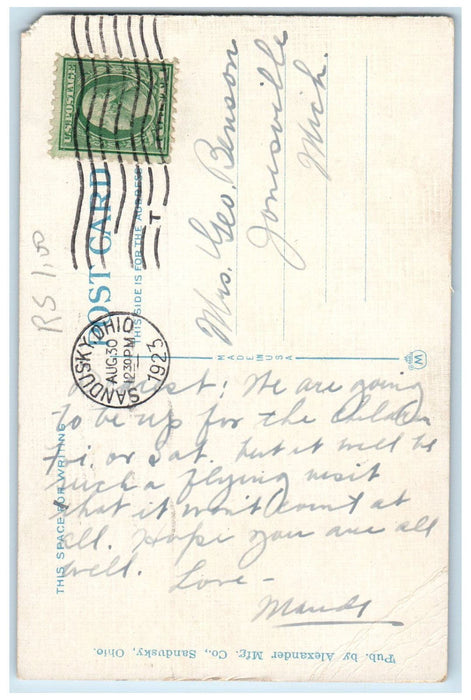 U.S. POSTAGE
SANDUSKY, OHIO
AUG 30
12 30 PM
1923
RS 1.00
POST CARD
THIS SIDE IS FOR THE ADDRESS
Mrs. Geo. Benson
Jonesville
Mich.
MADE IN USA
THIS SPACE FOR WRITING
We are going
to be up for the children
Fri. or Sat. but it will be
such a flying visit
that it won't count at
all. Hope you are all
well. Love -
Maude
Pub. by Alexander Mfg. Co., Sandusky, Ohio.